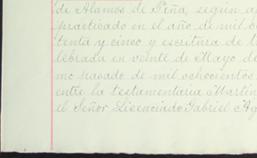 de Alamos de Peña, según a
practicado en el año de mil o
tenta y cinco y escritura de
lebrada en veinte de Mayo de
mo pasado de mil ochocientos
entre la testamentaria Martin
el Señor Licenciado Gabriel Ag